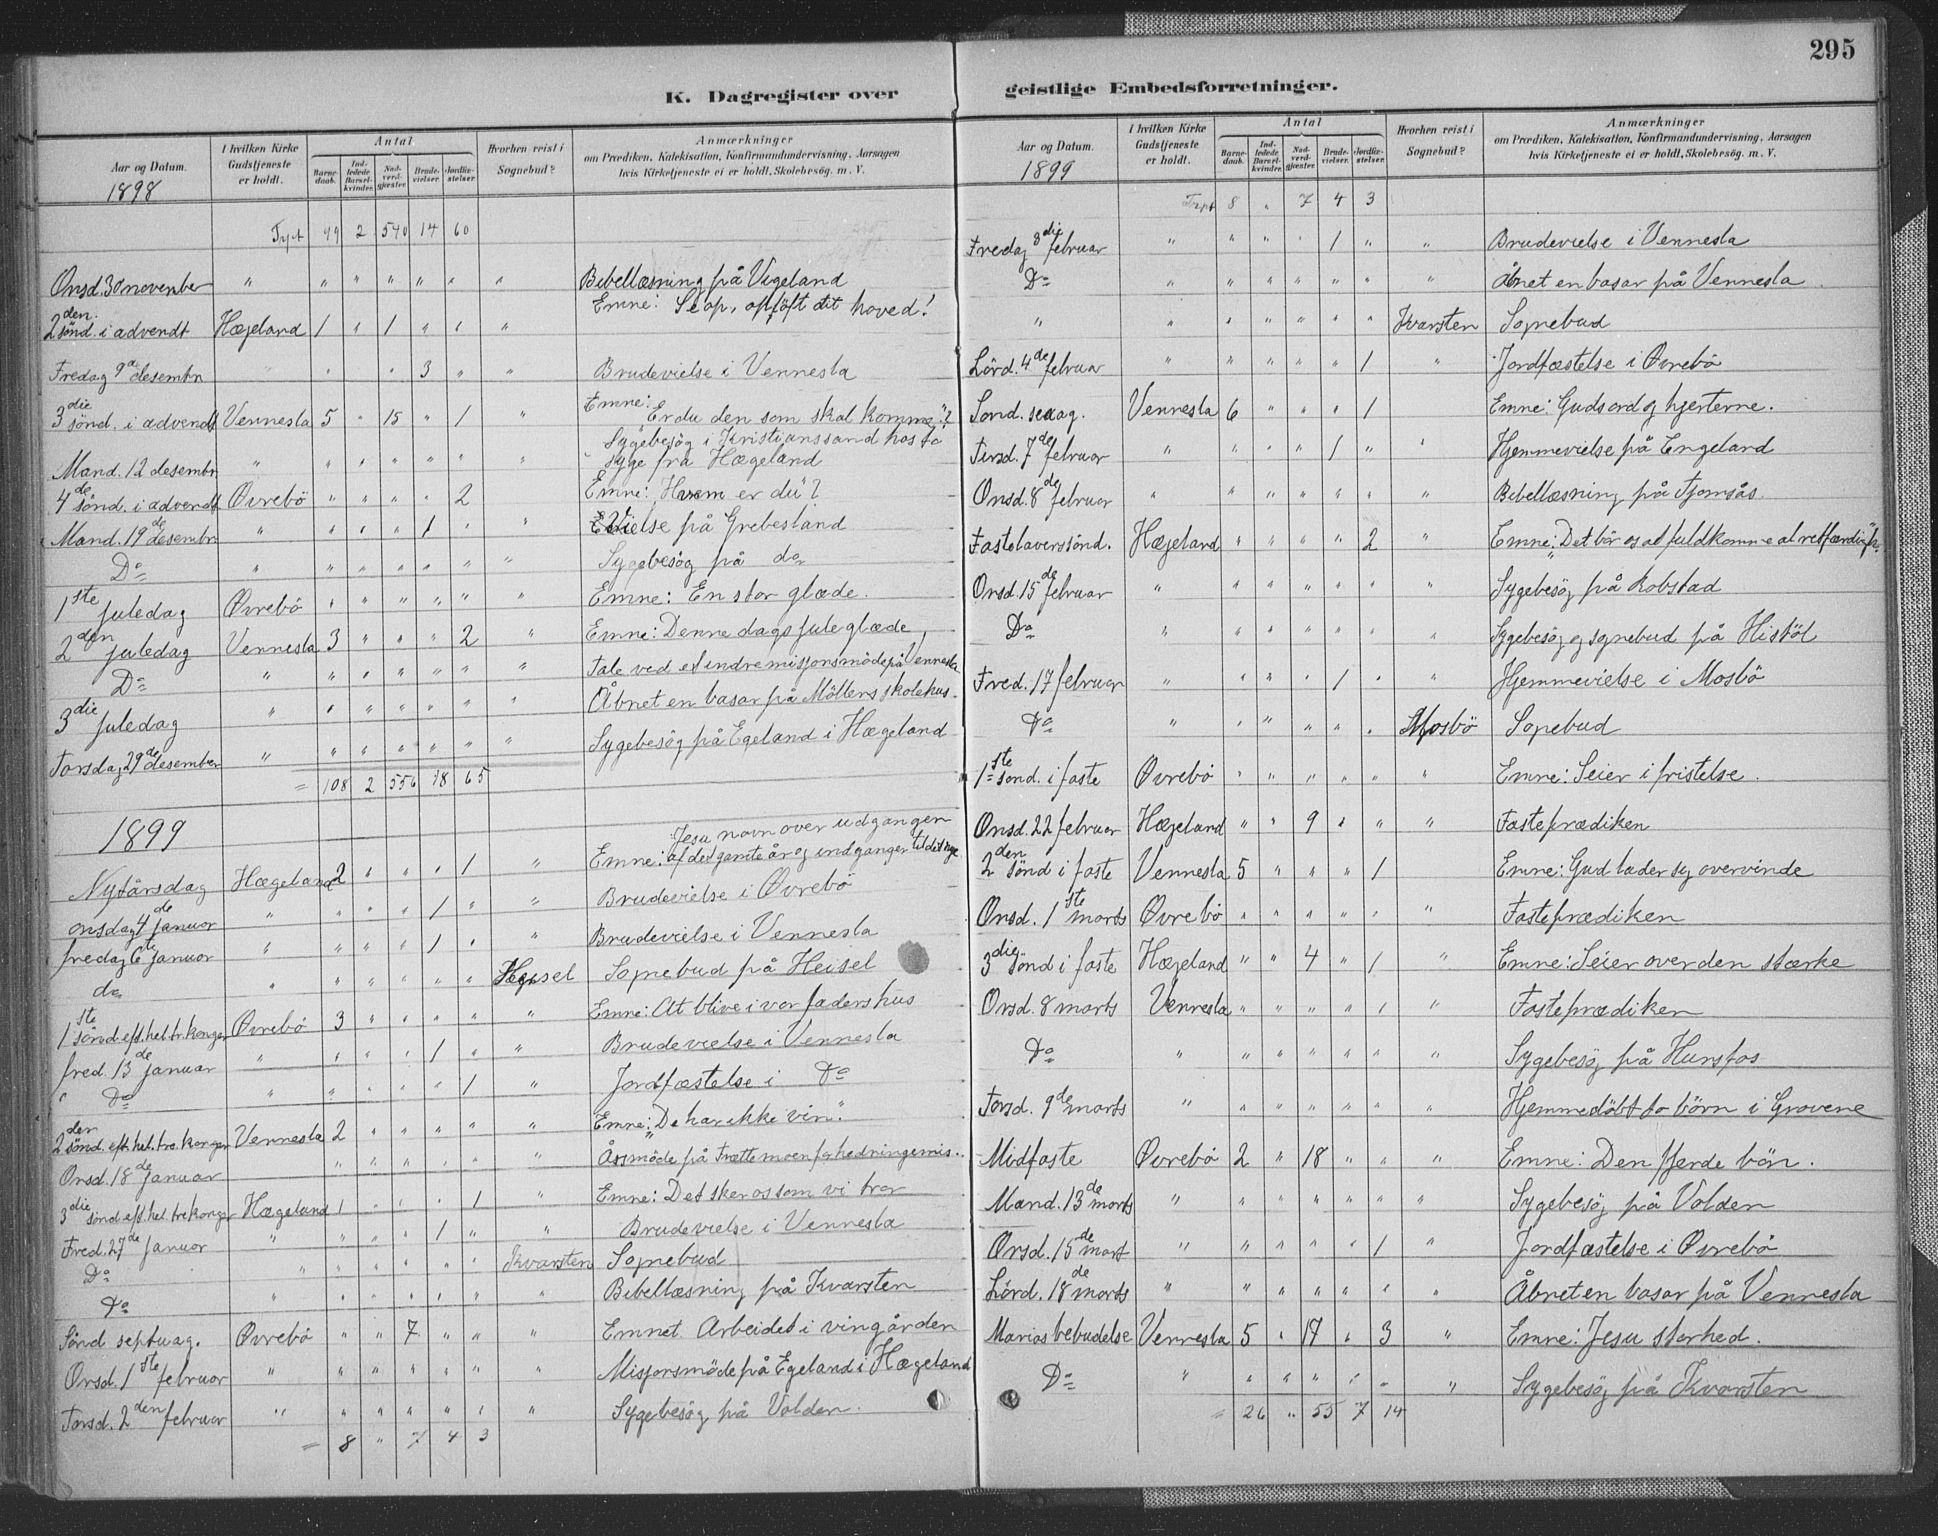 295
K. Dagregister over geistlige Embedsforretninger.
Aar og Datum.
I hvilken Kirke Gudstjeneste er holdt.
Antal
Barnedaab.
Indledede Barselkvinder.
Nadverdgjæster
Brudevielser
Jordfæstelser
Hvorhen reist i Sognebud?
Anmærkninger
om Prædiken, Katekisation, Konfirmandundervisning, Aarsagen
hvis Kirketjeneste ei er holdt, Skolebesøg. m. V.
1898
Trpt 99 2 540 14 60
Onsd. 30 november " " " " " " " Bibellæsning på Vigeland
2den sönd. i advendt Hægeland 1 " 1 " " " Emne: Se op, opföft dit hoved!
Fredag 9de desembr " " " " 3 " " Brudevielse i Vennesla
3die sönd. i advendt Vennesla 5 " 15 " 1 " Emne: Er du den som skal komme"?
Mand. 12 desembr " " " " " " " Sygebesög i Kristianssand hos to syge fra Hægeland
4de sönd. i advendt Øvrebö " " " " 2 Emne: Hvem er du"?
Mand. 19de desembr " " " " 1 " " Vielse på Grebesland
Do " " " " " " " Sygebesög på do
1ste juledag Øvrebö " " " " " " Emne: En stor glæde.
2den juledag Vennesla 3 " " " 2 " Emne: Denne dags juleglæde
Do " " " " " " " Tale ved et indremisjonsmöde på Vennesla
3die juledag " " " " " " " Åbnet en basar på Möllers skolehus.
Torsdag 29de desember " " " " " " " Sygebesög på Egeland i Hægeland
= 108 2 556 18 65
1899
Nytårsdag Hægeland 2 " " " 1 " Emne: Jesu navn over udgangen af det gamle år og indgangen til det nye
onsdag 4de januar " " " " 1 " " Brudevielse i Øvrebö
fredag 6te januar " " " " 1 " " Brudevielse i Vennesla
do " " " " " " Heisel Sognebud på Heisel
1ste sönd. eft. hel. tr. konger Øvrebö 3 " " " " " Emne: At blive i vor faders hus
fred. 13de januar " " " " 1 " " Brudevielse i Vennesla
" Do " " " " " 1 " Jordfæstelse i Do
2den sönd. eft. hel. tre konger Vennesla 2 " " " " " Emne: "De har ikke vin."
Onsd. 18de januar " " " " " " Årsmöde på Trættemoen for hedningemis.
3die sönd. eft. hel. tre konger Hægeland 1 " " " 1 " Emne: Det sker os som vi tror
Fred. 27de januar " " " " 1 " " Brudevielse i Vennesla
Do " " " " " " Kvarsten Sognebud
Do " " " " " " " Bibellæsning på Kvarsten
Sönd septuag. Øvrebö " " 7 " " " Emnet Arbeidet i vingården
Onsd. 1ste februar " " " " " " Misjonsmöde på Egeland i Hægeland
Torsd. 2den februar " " " " " " " Sygebesög på Volden.
= 8 " 7 4 3
Aar og Datum.
I hvilken Kirke Gudstjeneste er holdt.
Antal
Barnedaab.
Indledede Barselkvinder.
Nadverdgjæster
Brudevielser.
Jordfæstelser
Hvorhen reist i Sognebud?
Anmærkninger
om Prædiken, Katekisation, Konfirmandundervisning, Aarsagen
hvis Kirketjeneste ei er holdt, Skolebesög. m. V.
1899
Trpt 8 " 7 4 3
Fredag 3die februar " " " " 1 " " Brudevielse i Vennesla
Do " " " " " " " Åbnet en basar på Vennesla
" " " " " " " Kvarsten Sognebud
Lörd. 4de februar " " " " " 1 " Jordfæstelse i Øvrebö
Sönd. sexag. Vennesla 6 " " " 1 Emne: Guds ord og hjerterne.
Tirsd. 7de februar " " " " 1 " " Hjemmevielse på Engeland
Onsd. 8de februar " " " " " " " Bibellæsning på Fjomsås.
Fastelaverssönd. Hægeland " " " " 2 " Emne: "Det bör os at fuldkomme al retfærdigh."
Onsd. 15de februar " " " " " " " Sygebesög på Robstad
Do " " " " " " " Sygebesög og sognebud på Histöl
Fred. 17 februar " " " " 1 " " Hjemmevielse i Mosbö
Do " " " " " " Mosbö Sognebud
1ste sönd. i faste Øvrebö " " " " " " Emne: Seier i fristelse.
Onsd. 22 februar Hægeland " " 9 " " " Fasteprædiken
2den sönd i faste Vennesla 5 " " " 1 Emne: Gud lader sig overvinde
Onsd. 1ste marts Øvrebö " " " " " " Fasteprædiken
3die sönd i faste Hægeland " " 4 " 1 " Emne: Seier over den stærke
Onsd. 8 marts Vennesla " " " " " " Fasteprædiken
Do " " " " " " " Sygebesög på Hunsfos
Torsd. 9de marts " " " " " " " Hjemmedöbt to börn i Grovene
Midfaste Øvrebö 2 " 18 " " " Emne: Den fjerde bön.
Mand. 13de marts " " " " " " " Sygebesög på Volden
Onsd. 15de mart " " " " " 1 " Jordfæstelse i Øvrebö
Lörd. 18de marts " " " " " " " Åbnet en basar på Vennesla
Marias bebudelse Vennesla 5 " 17 " 3 " Emne: Jesu storhed.
Do " " " " " " " Sygebesög på Kvarsten
= 26 " 55 7 14